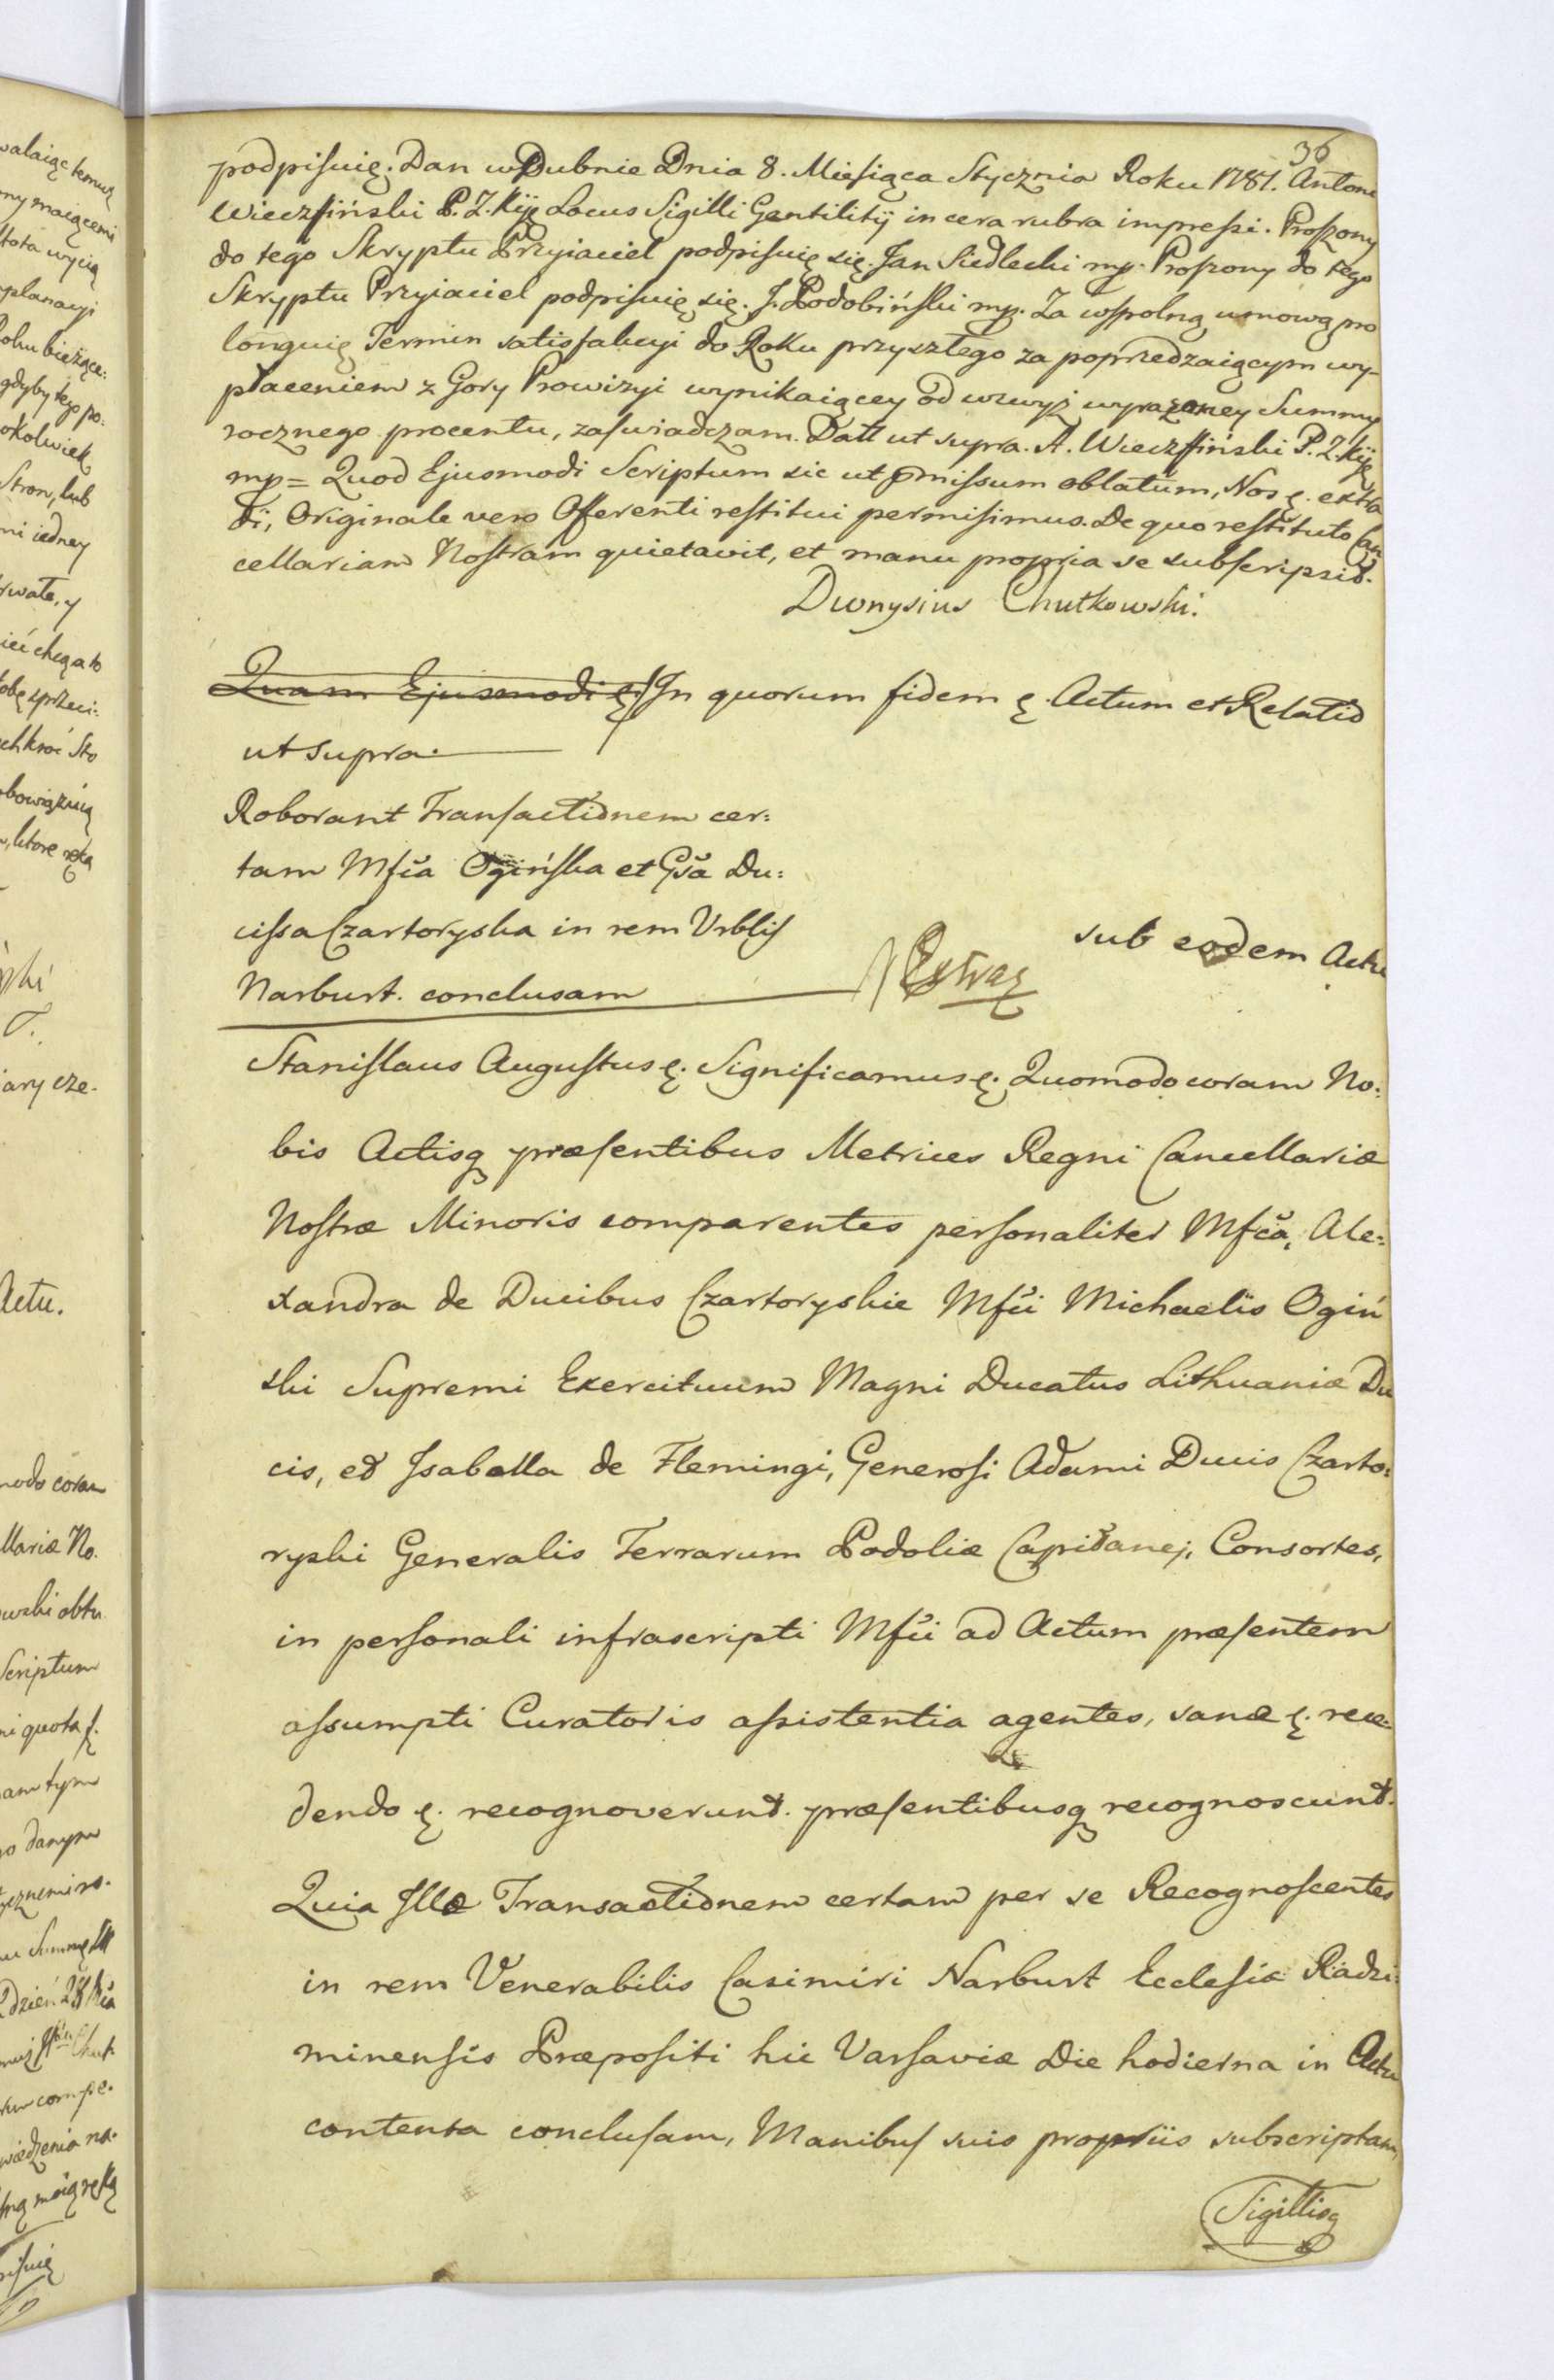 36
podpisuię. Dan w Dubnie Dnia 8. Miesiąca Stycznia Roku 1781. Antoni
Wieczffiński P. Z. Kij: Locus Sigilli Gentilitij in cera rubra impressi. Proszony
do tego Skryptu Przyiaciel podpisuię się. Jan Siedlecki mp. Proszony do tego
Skryptu Przyiaciel podpisuię się. J. Podobiński mp. Za wspolną umową pro
longuię Termin satisfakcyi do Roku przyszłego za poprzedzaiącym wy-
płaceniem z Gory Prowizyi wynikaiącey od wzwyż wyrażoney Summy
rocznego procentu, zaświadczam. Datt ut supra. A. Wieczffiński P. Z. Kij:
mp = Quod Ejusmodi Scriptum sic ut pmissum oblatum, Nos ę. extra
di, Originale vero Offerenti restitui permisimus. De quo restituto Can
cellariam Nostram quietavit, et manu propria se subscripsit.
Dionysius Chutkowski.
Quam Ejusmodi ę. In quorum fidem ę. Actum et Relatio
ut supra.
Roborant Transactionem cer:
tam Mfca Ogińska et Gsa Du:
cissa Czartoryska in rem Vrblis
Narbutt. conclusam
Extrad
sub eodem Actu
Stanislaus Augustus ę. Significamus ę. Quomodo coram No:
bis Actisq præsentibus Metrices Regni Cancellariæ
Nostræ Minoris comparentes personaliter Mfca, Ale:
xandra de Ducibus Czartoryskie Mfci Michaelis Ogiń
ski Supremi Exercituum Magni Ducatus Lithuaniæ Du
cis, et Isabella de Flemingi, Generosi Adami Ducis Czarto:
ryski Generalis Terrarum Podoliæ Capitanej, Consortes,
in personali infrascripti Mfci ad Actum præsentem
assumpti Curatoris assistentia agentes, sanæ ę. rece:
dendo ę. recognoverunt. præsentibusq recognoscunt.
Quia Illæ Transactionem certam per se Recognoscentes
in rem Venerabilis Casimiri Narbutt Ecclesiæ Radzi:
minensis Præpositi hic Varsaviæ Die hodierna in Actu
contenta conclusam, Manibus suis propriis subscriptam,
Sigillisq